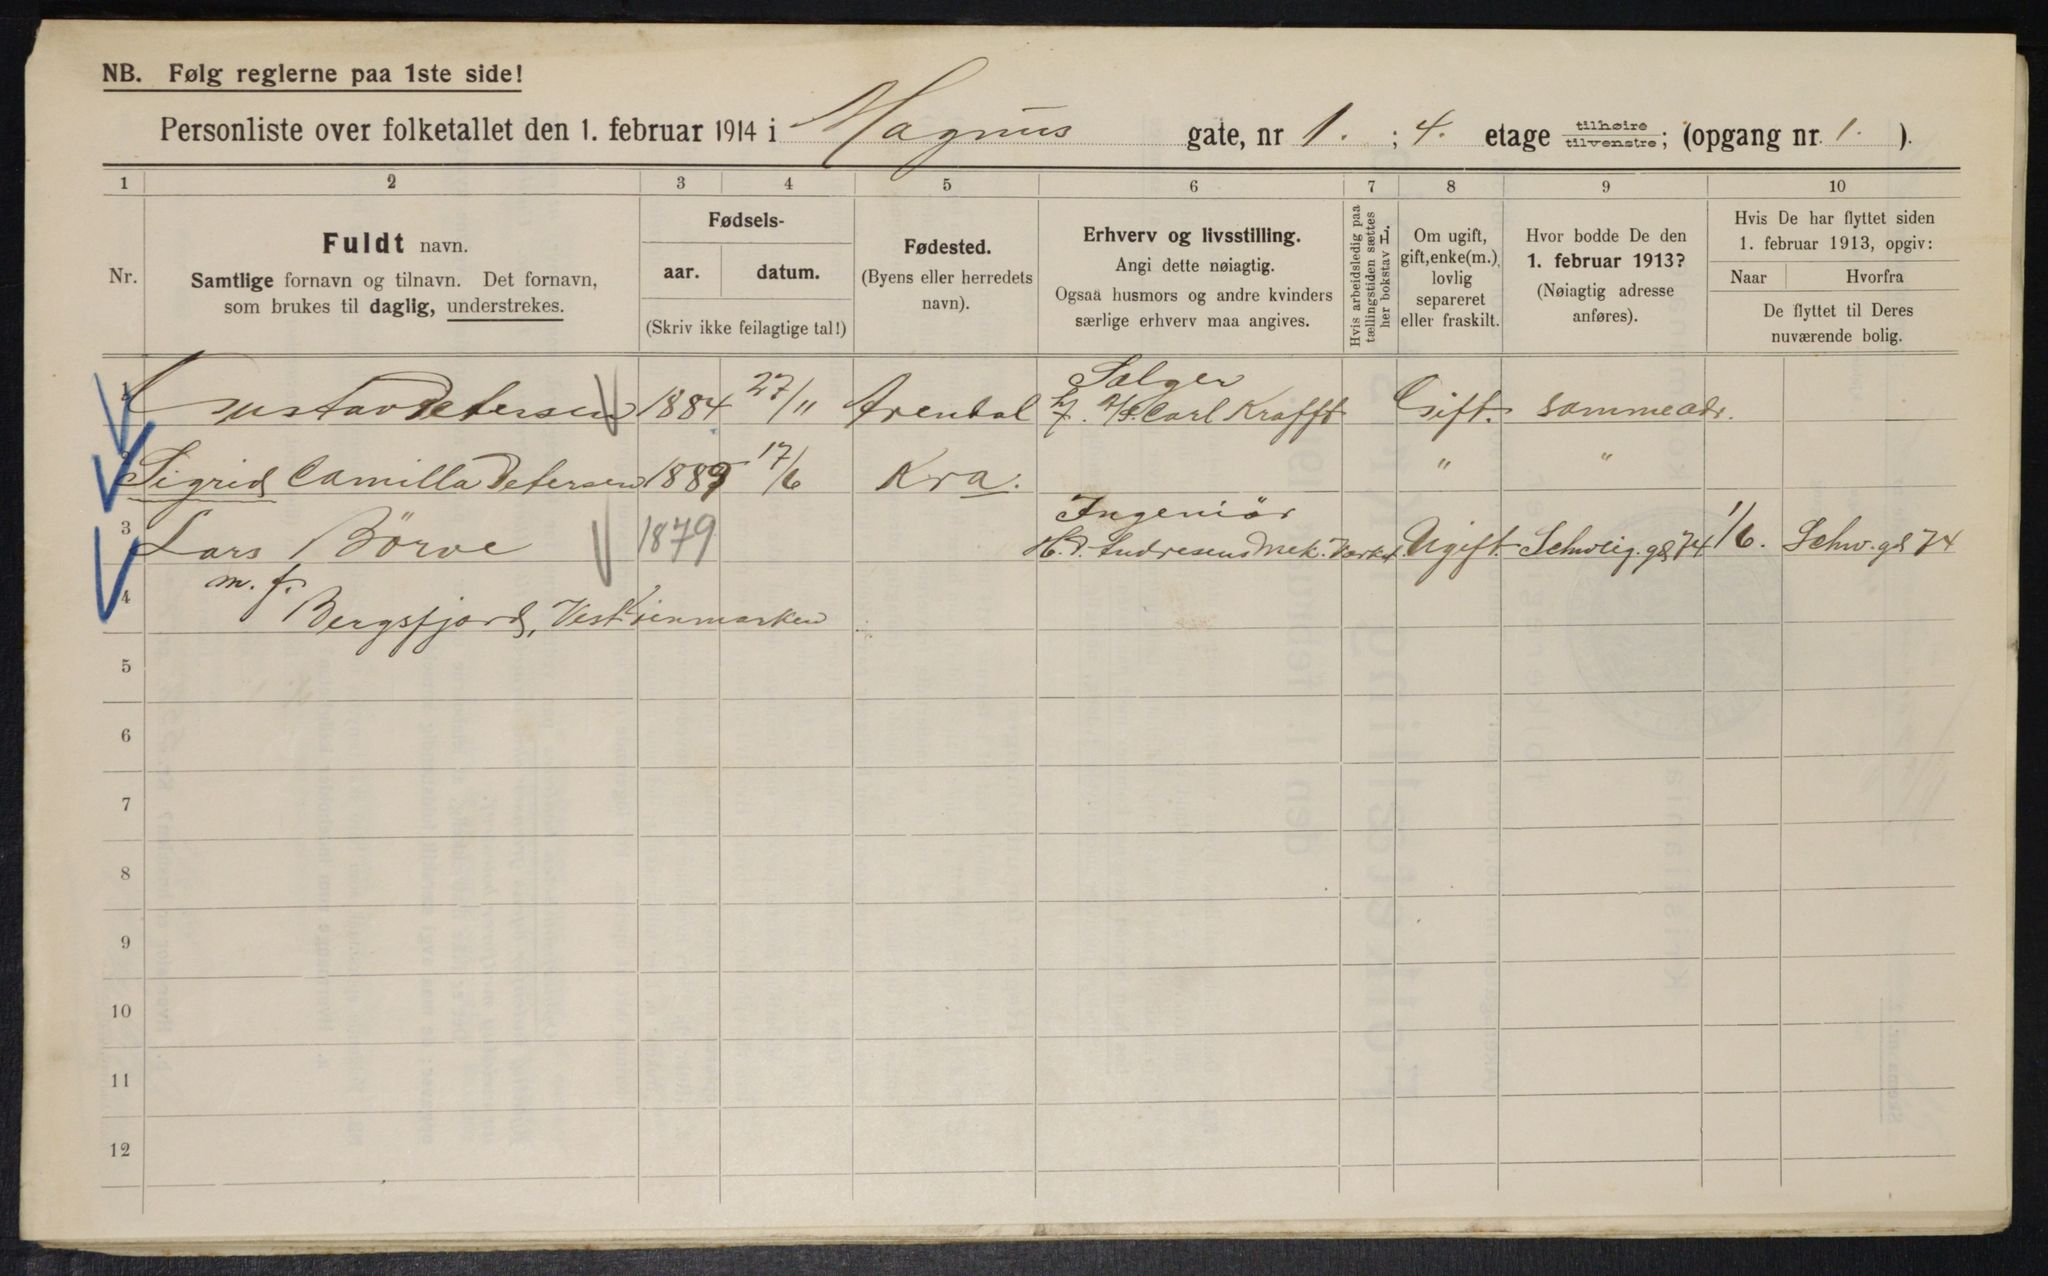 NB. Følg reglerne paa 1ste side!
Personliste over folketallet den 1. februar 1914 i Magnus gate, nr 1. ; 4. etage tilhøire/tilvenstre; (opgang nr. 1. ).
1 2 3 4 5 6 7 8 9 10
Nr.
Fuldt navn.
Samtlige fornavn og tilnavn. Det fornavn,
som brukes til daglig, understrekes.
Fødsels-
aar. datum.
(Skriv ikke feilagtige tal!)
Fødested.
(Byens eller herredets
navn).
Erhverv og livsstilling.
Angi dette nøiagtig.
Ogsaa husmors og andre kvinders
særlige erhverv maa angives.
Hvis arbeidsledig paa
tællingstiden sættes
her bokstav H.
Om ugift,
gift, enke(m.),
lovlig
separeret
eller fraskilt.
Hvor bodde De den
1. februar 1913?
(Nøiagtig adresse
anføres).
Hvis De har flyttet siden
1. februar 1913, opgiv:
Naar Hvorfra
De flyttet til Deres
nuværende bolig.
1 Gustav Petersen 1884 27/11 Arendal Sælger h/f. A/S. Carl Krafft Gift. samme adr.
2 Sigrid Camilla Petersen 1889 17/6 Kra. " "
3 Lars Börve 1879 Ingeniör H. Andresens Mek. Værkst Ugift Schweig. gd 74 1/6. Schw. gd 74
4 m. f. Bergsfjord, Vestfinmarken
5
6
7
8
9
10
11
12